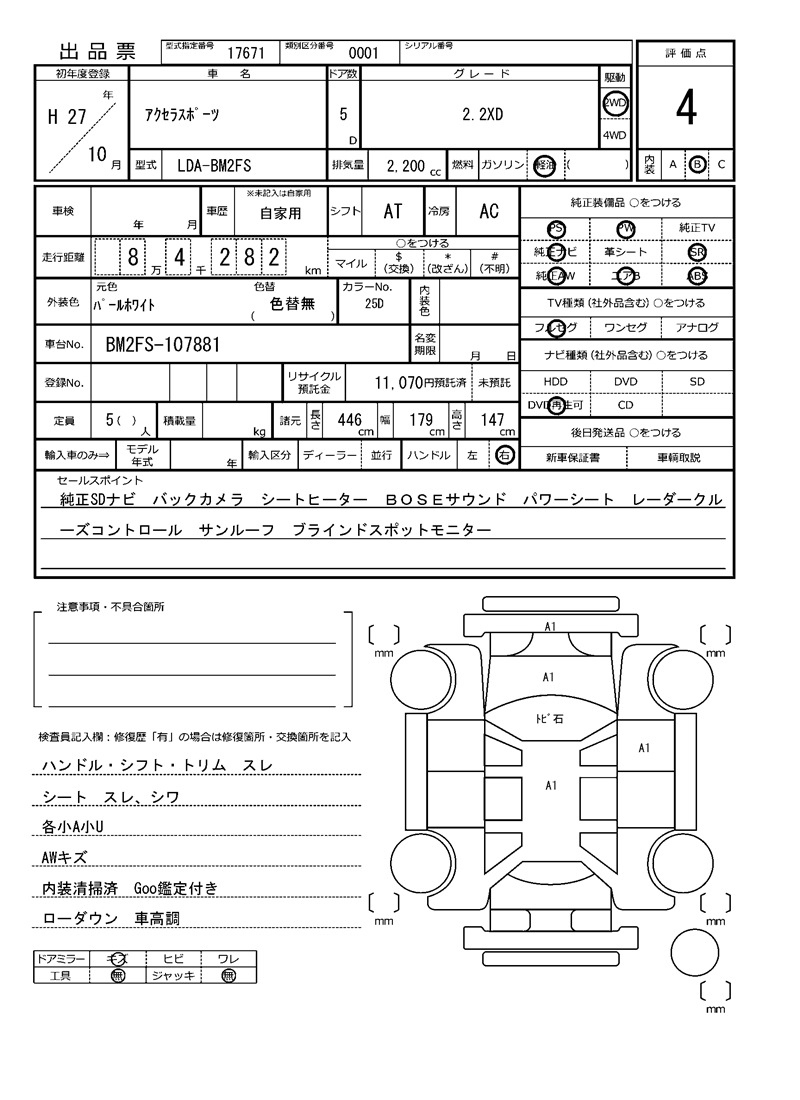 出品票 型式指定番号 17671 類別区分番号 0001 シリアル番号
評価点
4
内装 A B C
初年度登録 車名 ドア数 グレード 駆動
H 27 年 10 月 アクセラスポーツ 5 D 2.2XD 2WD 4WD
型式 LDA-BM2FS 排気量 2,200 cc 燃料 ガソリン 軽油 ( )
車検 年 月 車歴 ※未記入は自家用 自家用 シフト AT 冷房 AC
走行距離 8 万 4 千 2 8 2 km ○をつける
マイル $ (交換) * (改ざん) # (不明)
外装色 元色 パールホワイト 色替 色替無 ( ) カラーNo. 25D 内装色
車台No. BM2FS-107881 名変期限 月 日
登録No. リサイクル預託金 11,070円預託済 未預託
定員 5( ) 人 積載量 kg 諸元 長さ 446 cm 幅 179 cm 高さ 147 cm
輸入車のみ⇒ モデル年式 年 輸入区分 ディーラー 並行 ハンドル 左 右
純正装備品 ○をつける
PS PW 純正TV
純正ナビ 革シート SR
純正AW エアB ABS
TV種類(社外品含む)○をつける
フルセグ ワンセグ アナログ
ナビ種類(社外品含む)○をつける
HDD DVD SD
DVD再生可 CD
後日発送品 ○をつける
新車保証書 車輌取説
セールスポイント
純正SDナビ バックカメラ シートヒーター BOSEサウンド パワーシート レーダークル
ーズコントロール サンルーフ ブラインドスポットモニター
注意事項・不具合箇所
検査員記入欄:修復歴「有」の場合は修復箇所・交換箇所を記入
ハンドル・シフト・トリム スレ
シート スレ、シワ
各小A小U
AWキズ
内装清掃済 Goo鑑定付き
ローダウン 車高調
ドアミラー キズ ヒビ ワレ
工具 無 ジャッキ 無
A1
mm mm
A1
トビ石
A1
A1
mm mm
mm